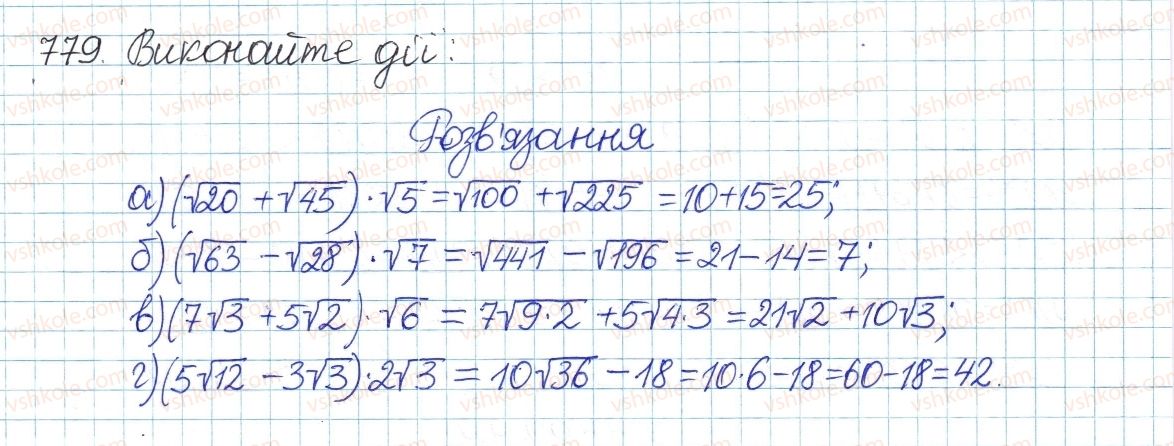 779. Виконайте дії:
Розв'язання
а) (√20 + √45) · √5 = √100 + √225 = 10 + 15 = 25;
б) (√63 − √28) · √7 = √441 − √196 = 21 − 14 = 7;
в) (7√3 + 5√2) · √6 = 7√9·2 + 5√4·3 = 21√2 + 10√3;
г) (5√12 − 3√3) · 2√3 = 10√36 − 18 = 10·6 − 18 = 60 − 18 = 42.